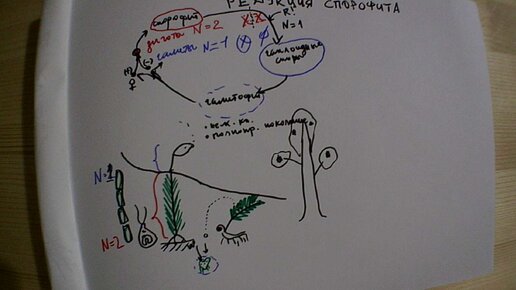 РЕДУКЦИЯ СПОРОФИТА
спорофит
R!
зигота N=2
N=1
гаметы N=1
гаплоидные
споры
гаметофит
полиопр. поколение
N=1
N=2